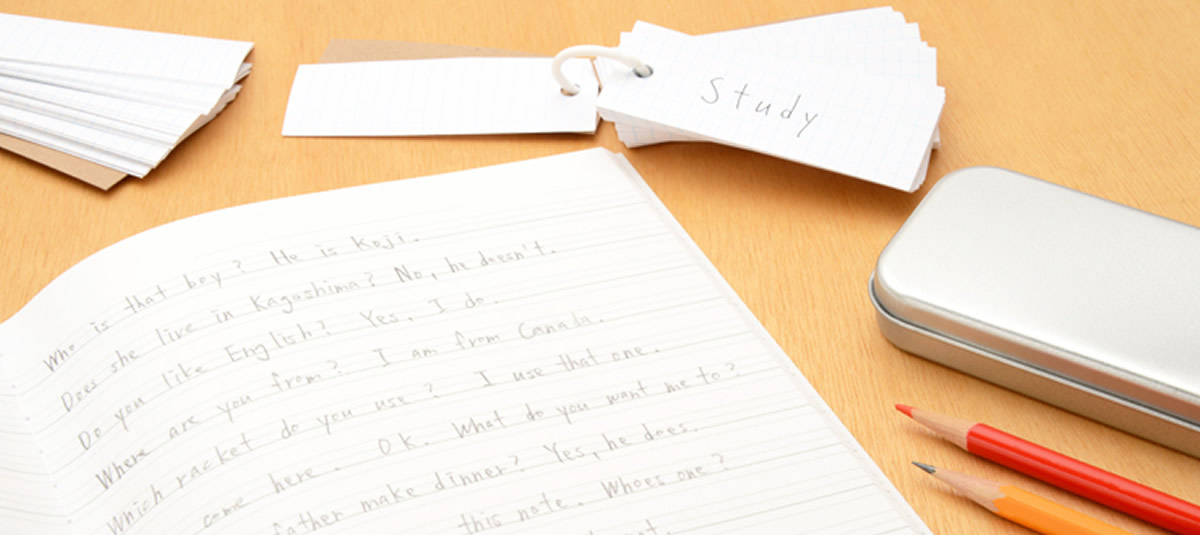 Study
Who is that boy? He is Koji.
Does she live in Kagoshima? No, he doesn't.
Do you like English? Yes, I do.
Where are you from? I am from Canada.
Which racket do you use? I use that one.
come here. OK. What do you want me to?
father make dinner? Yes, he does.
this note. Whoes one?